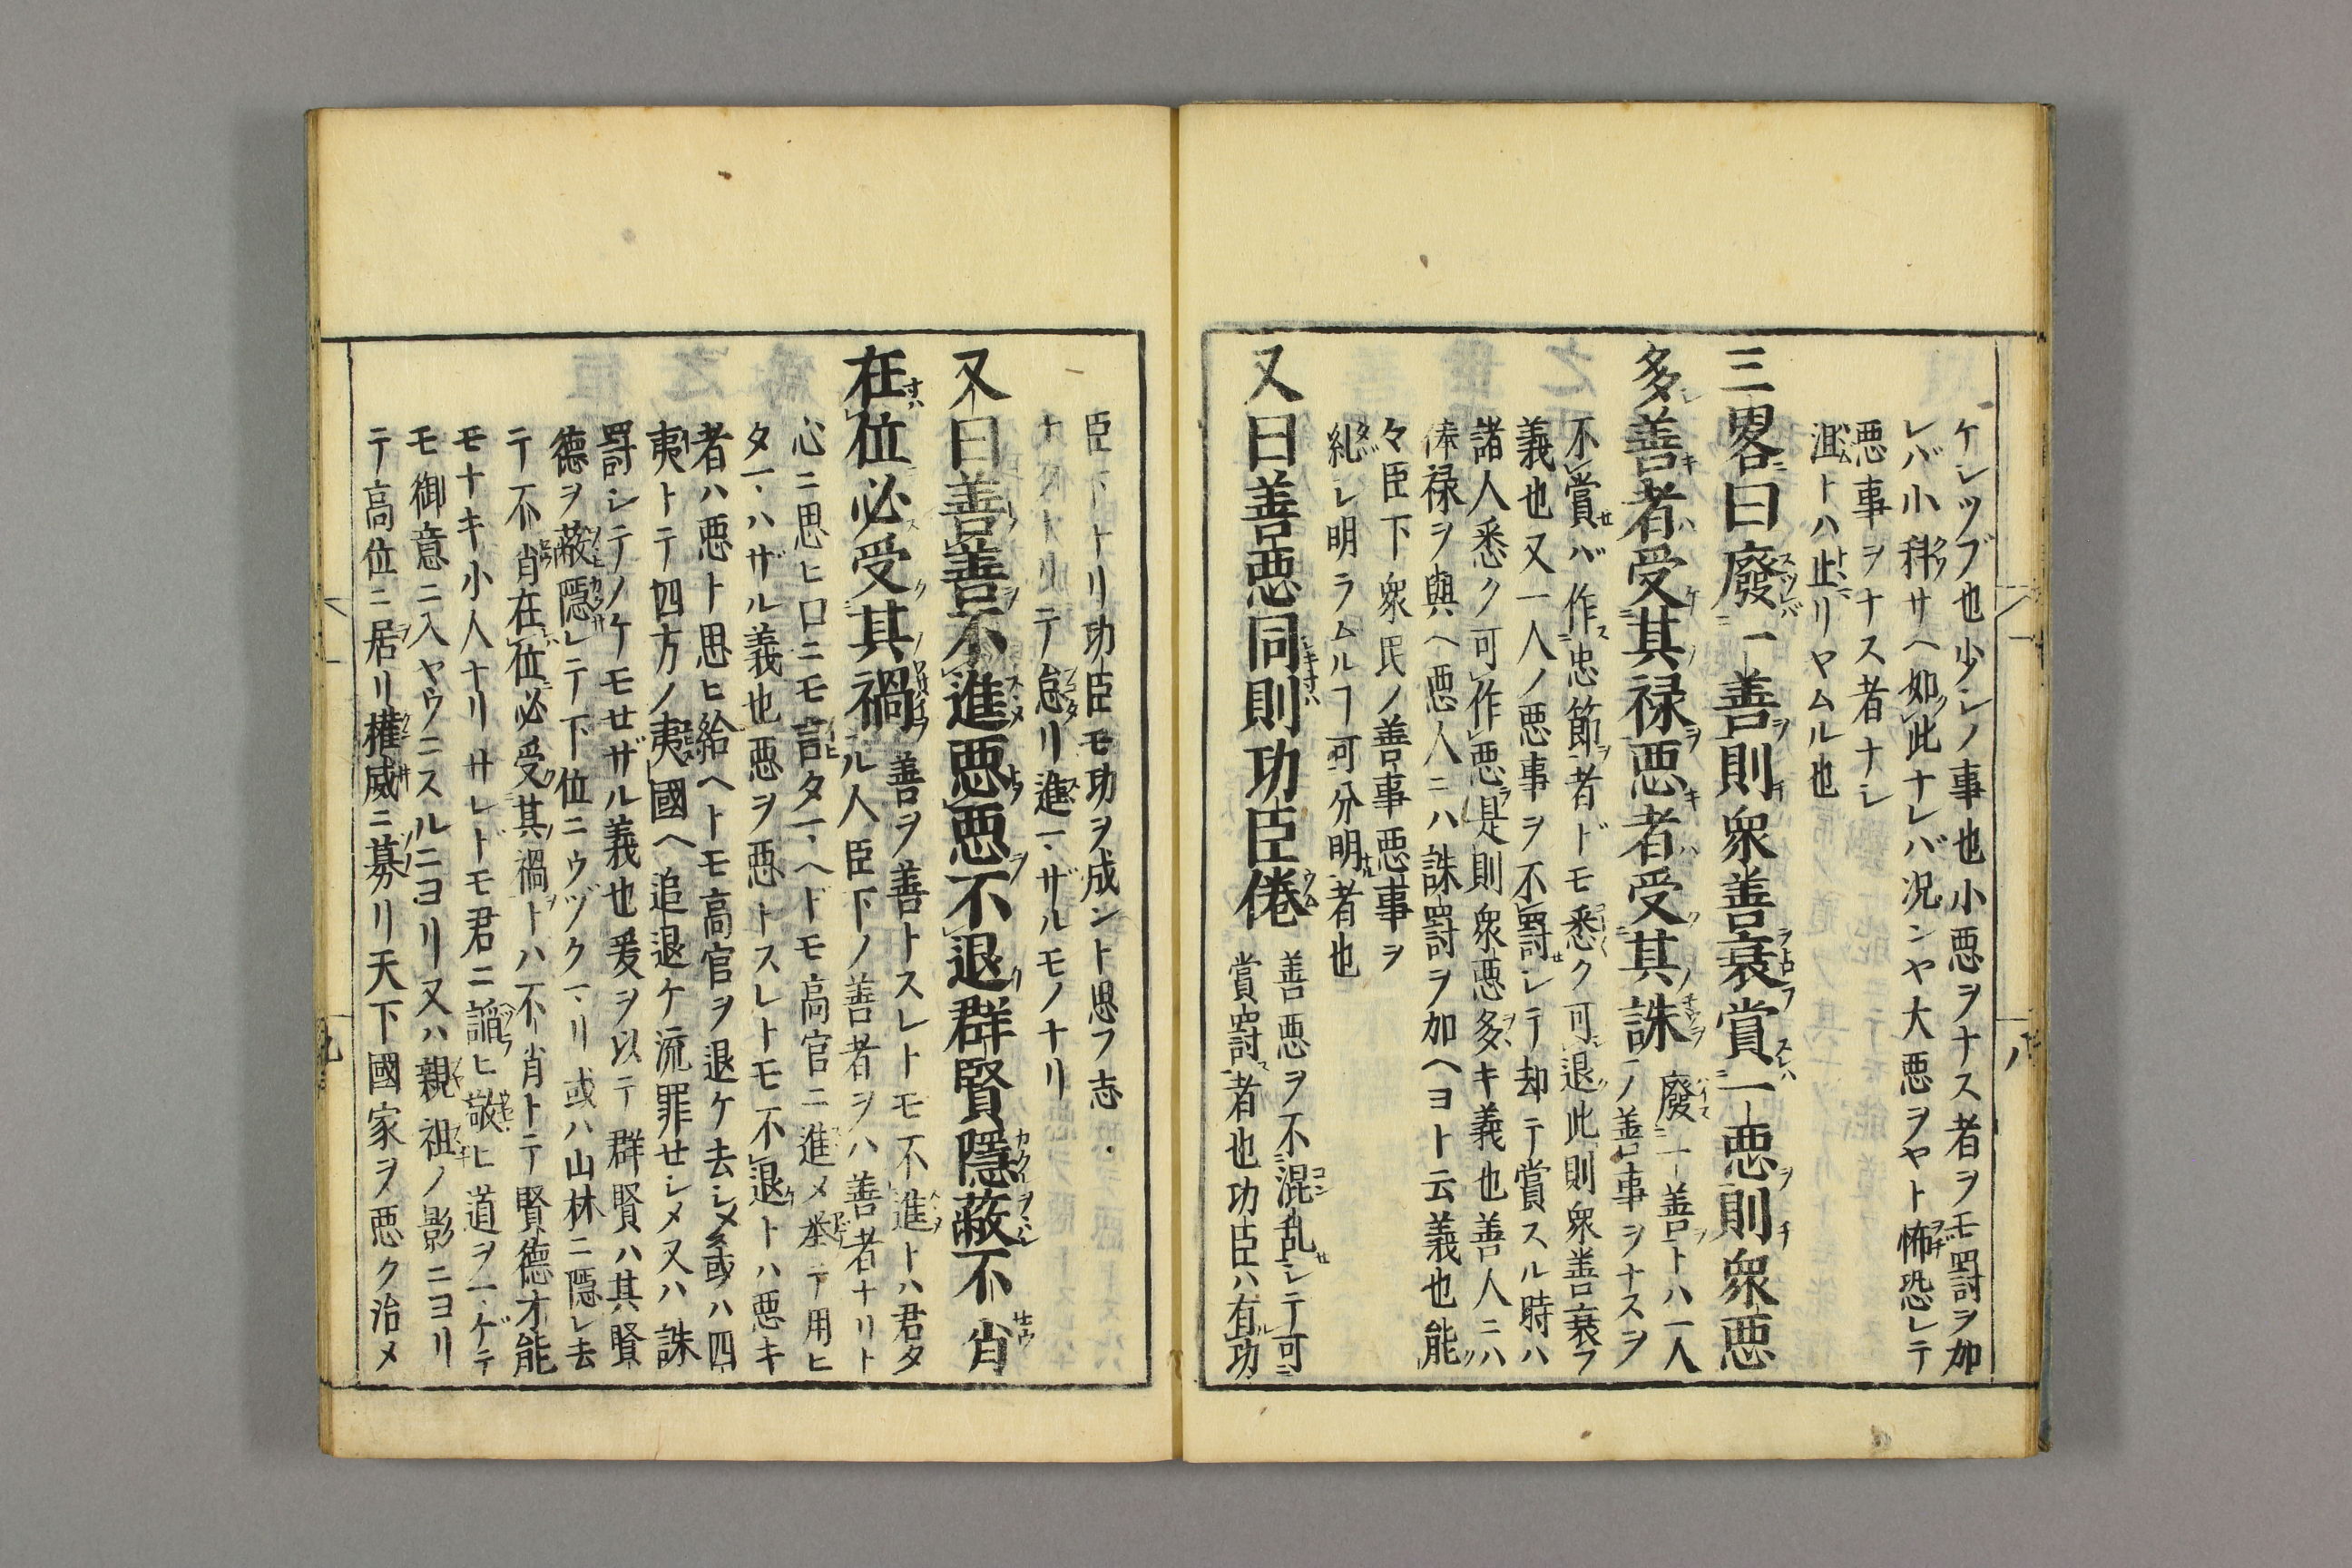 ケシツブ也少シノ事也小悪ヲナス者ヲモ罰ヲ加
レバ小科サヘ如此ナレバ况ンヤ大悪ヲヤト怖恐レテ
悪事ヲナス者ナシ
沮トハ止リヤムル也
三畧曰廢一善則衆善衰賞一悪則衆悪
多善者受其禄悪者受其誅 廢一善トハ一人
ノ善事ヲナスヲ
不賞バ作忠節者ドモ悉ク可退此則衆善衰フ
義也又一人ノ悪事ヲ不罰シテ却テ賞スル時ハ
諸人悉ク可作悪是則衆悪多キ義也善人ニハ
俸禄ヲ與ヘ悪人ニハ誅罰ヲ加ヘヨト云義也能
々臣下衆民ノ善事悪事ヲ
糺シ明ラムルヿ可分明者也
又曰善悪同則功臣倦 善悪ヲ不混乱シテ可
賞罰者也功臣ハ有功
臣下トリ功臣モ功ヲ成ント思フ志
テ怠リ進マザルモノナリ
又曰善善不進悪悪不退群賢隱蔽不肖
在位必受其禍 善ヲ善トスレトモ不進トハ君タ
ル人臣下ノ善者ヲハ善者ナリト
心ニ思ヒ口ニモ言タマヘトモ高官ニ進メ挙テ用ヒ
タマハザル義也悪ヲ悪トスレトモ不退トハ悪キ
者ハ悪ト思ヒ給ヘトモ高官ヲ退ケ去シメ或ハ四
夷トテ四方ノ夷國ヘ追退ケ流罪せシメ又ハ誅
罸シテノケモせザル義也爰ヲ以テ群賢ハ其賢
德ヲ蔽隱シテ下位ニウヅクマリ或ハ山林ニ隱レ去
テ不肖在位必受其禍トハ不肖トテ賢德才能
モナキ小人ナリサレドモ君ニ諂ヒ敬ヒ道ヲマゲテ
モ御意ニ入ヤウニスルニヨリ又ハ親祖ノ影ニヨリ
テ高位ニ居リ權威ニ募リ天下國家ヲ悪ク治メ
八
九